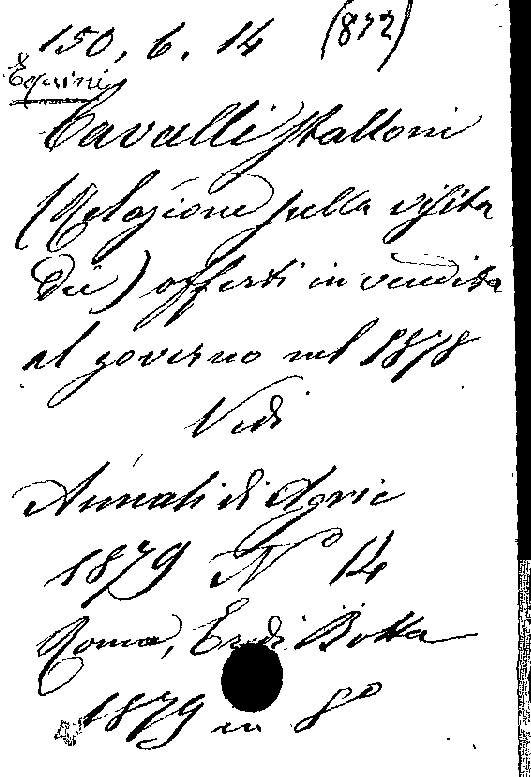 150. 6. 14 (872)
Equini
Cavalli Stalloni
(Relazione sulla visita
dei) offerti in vendita
al governo nel 1878
Vedi
Annali di Agric
1879 N° 14
Roma, Er. di Botta
1879 in 8°